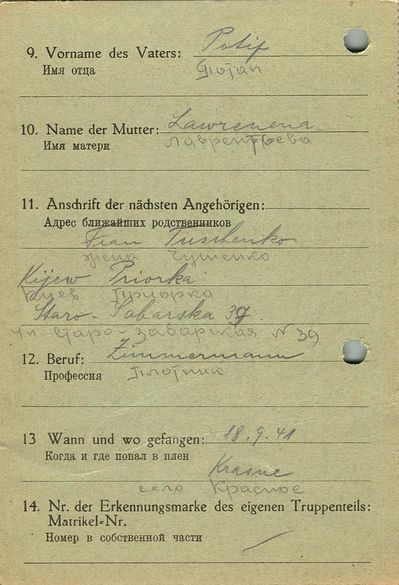 9. Vorname des Vaters: Potif
Имя отца
10. Name der Mutter: Lawrenena
Имя матери Лаврентьева
11. Anschrift der nächsten Angehörigen:
Адрес ближайших родственников
Frau Tuschenko
жена
Kijew Priorka
Киев Приорка
Staro-Sabarska 39
ул. Старо-Забарская № 39
12. Beruf: Zimmermann
Профессия плотник
13 Wann und wo gefangen: 18.9.41
Когда и где попал в плен
Krasne
село Красное
14. Nr. der Erkennungsmarke des eigenen Truppenteils:
Matrikel-Nr.
Номер в собственной части